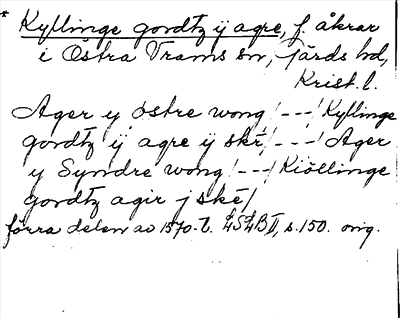 * Kyllinge gordtz ÿ agre, f. åkrar
i Östra Vrams sn, Järds hd,
Krist. l.
Ager y østre wong /---/ Kyllinge
gordtz ÿ agre ÿ skē /---/ Ager
y Syndre wong /---/ Kiöllinge
gordtz agir j skē /
förra delen av 1570-t. LSLB II, s. 150. orig.